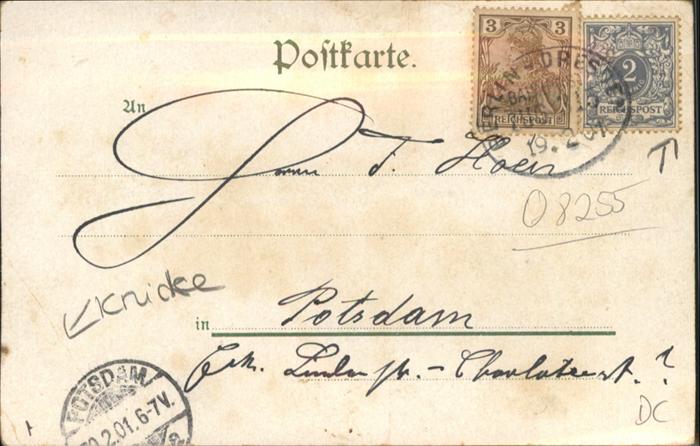 Postkarte.
3
REICHSPOST
2
REICHSPOST
BERLIN DRESDEN
BAHNPOST
19.2.01
An
Herrn T. Hoen
O 8255
Knicke
in Potsdam
Eck. Lindenstr. - Charlottenst. ?
POTSDAM
20.2.01.6-7V.
DC